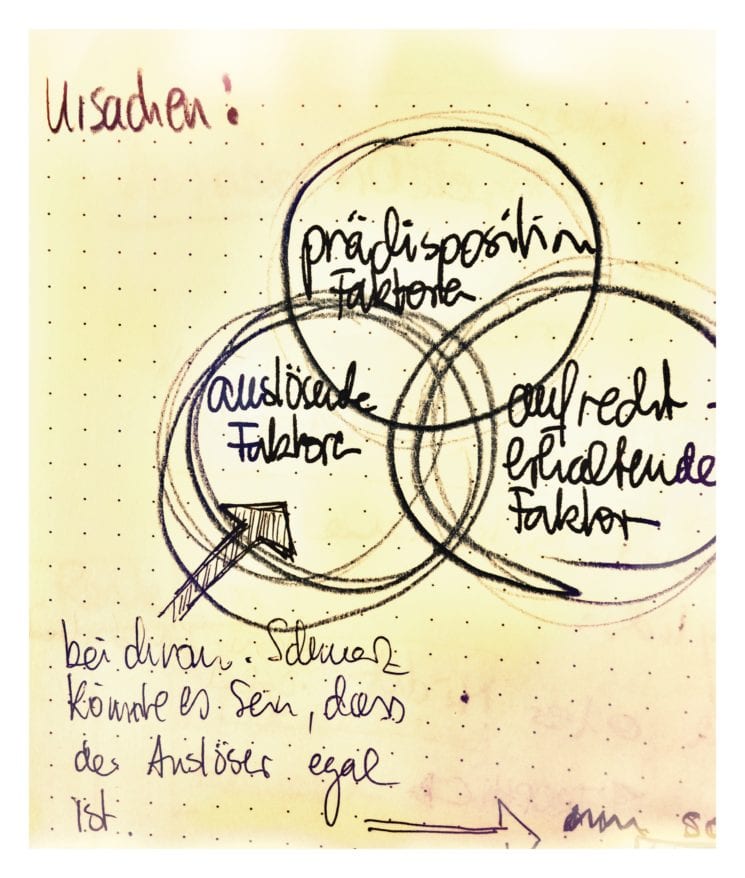 Ursachen:
prädisposition
Faktoren
auslösende
Faktoren
aufrecht-
erhaltende
Faktor
bei chron. Schmerz
könnte es sein, dass
der Auslöser egal
ist.